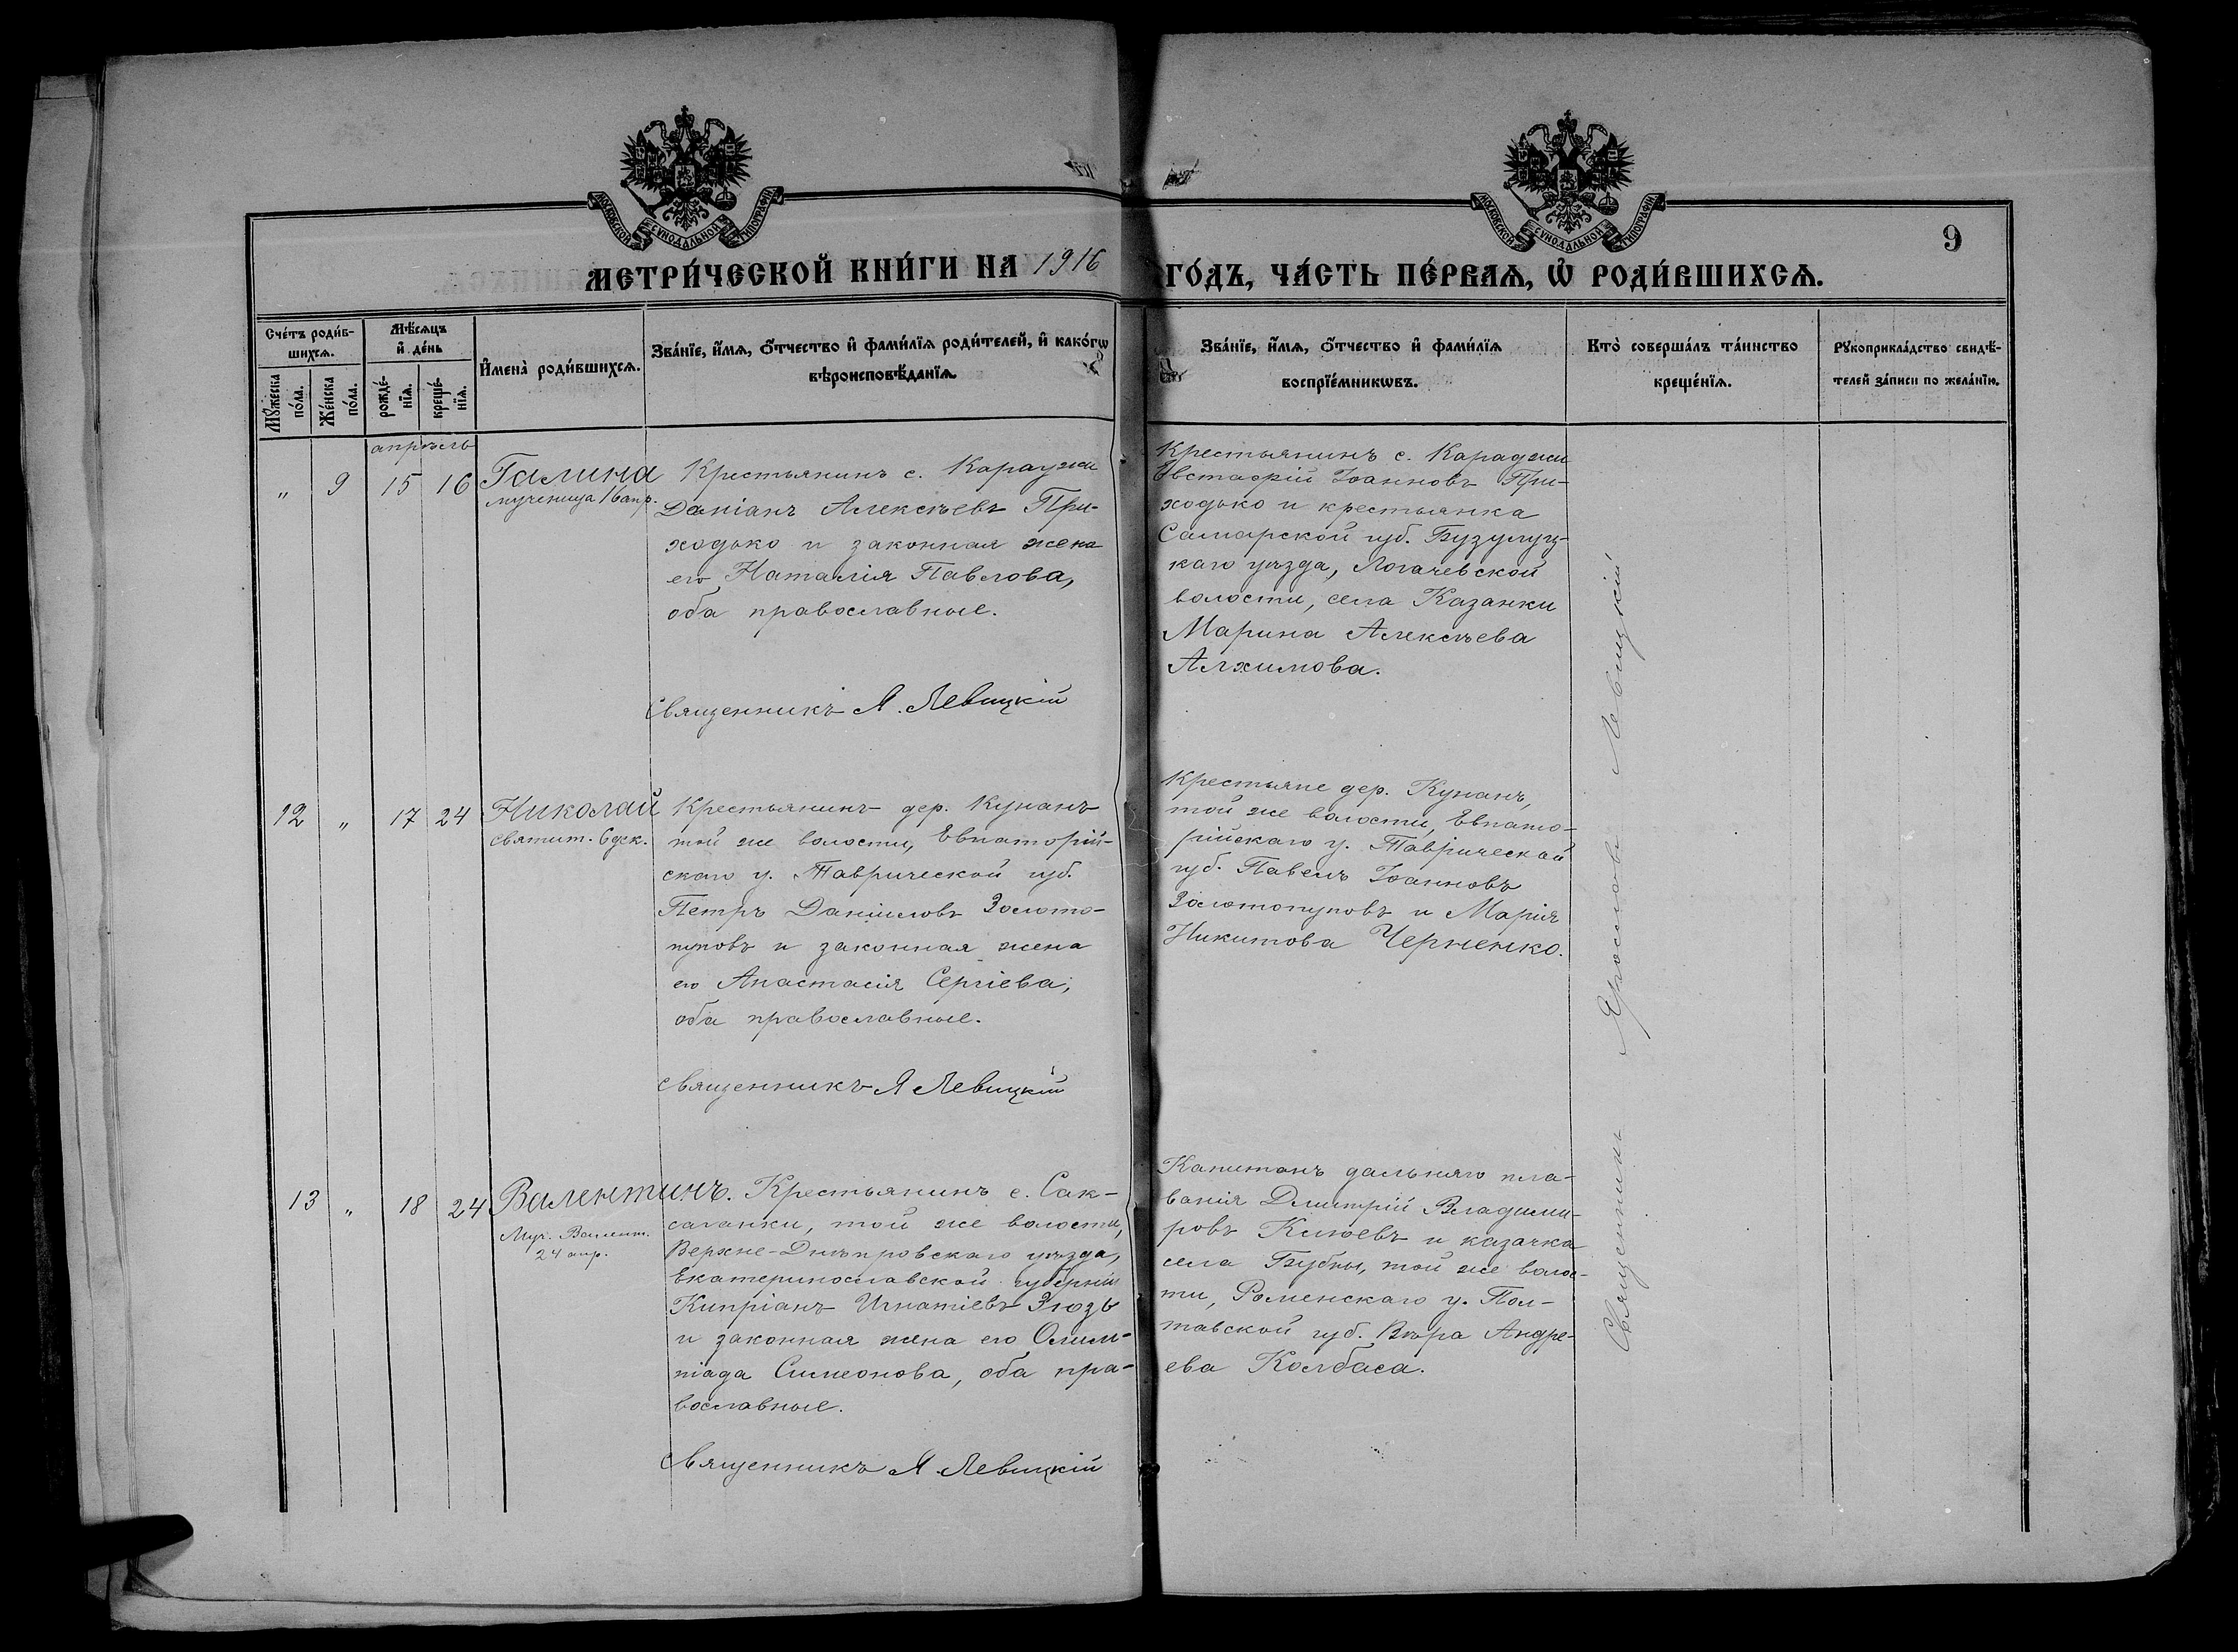 МОСКОВСКОЙ СѴНОДАЛЬНОЙ ТИПОГРАФІИ
МОСКОВСКОЙ СѴНОДАЛЬНОЙ ТИПОГРАФІИ
9
МЕТРИ́ЧЕСКОЙ КНИ́ГИ НА 1916 ГО́ДЪ, ЧА́СТЬ ПЕ́РВАѦ, Ѡ҆ РОДИ́ВШИХСѦ.
Сче́тъ роди́в-
шихсѧ.
Мѣ́сяцъ
и҆ де́нь
Мꙋ́жеска
по́ла.
Же́нска
по́ла.
рожде́-
нїѧ.
креще́-
нїѧ.
И҆мена̀ роди́вшихсѧ.
Зва́нїе, и҆́мѧ, ѻ҆́тчество и҆ фами́лїѧ роди́телей, и҆ како́гѡ
вѣроисповѣ́данїѧ.
Зва́нїе, и҆́мѧ, ѻ҆́тчество и҆ фами́лїѧ
воспрїе́мникѡвъ.
Кто̀ соверша́лъ та́инство
креще́нїѧ.
Рꙋкоприкла́дство свидѣ́-
телей за́писи по жела́нїю.
апрѣль
" 9 15 16 Галина
мученица 16 апр.
Крестьянинъ с. Караджи
Даміанъ Алексѣевъ При-
ходько и законная жена
его Наталія Павлова,
оба православные.
Священникъ Я. Левицкій
Крестьянинъ с. Караджи
Евстафій Іоанновъ При-
ходько и крестьянка
Самарской губ. Бузулуц-
каго уѣзда, Логачевской
волости, села Казанки
Марина Алексѣева
Алхимова.
12 " 17 24 Николай
святит. 6 дек.
Крестьянинъ дер. Кунанъ
той же волости, Евпаторій-
скаго у. Таврической губ.
Петръ Даніиловъ Золото-
пуповъ и законная жена
его Анастасія Сергіева,
оба православные.
Священникъ Я Левицкій
Крестьяне дер. Кунанъ,
той же волости, Евпато-
рійскаго у. Таврической
губ. Павелъ Іоанновъ
Золотопуповъ и Марія
Никитова Черненко.
13 " 18 24 Валентинъ.
Муч. Валент.
24 апр.
Крестьянинъ с. Сак-
саганки, той же волости,
Верхне-Днѣпровскаго уѣзда,
Екатеринославской губерніи
Кипріанъ Игнатіевъ Зюзь
и законная жена его Олим-
піада Симеонова, оба пра-
вославные.
Священникъ Я. Левицкій
Капитанъ дальняго пла-
ванія Димитрій Владими-
ровъ Клюевъ и казачка
села Бубны, той же волос-
ти, Роменскаго у. Пол-
тавской губ. Вѣра Андре-
ева Колбаса.
Священникъ Ярославъ Левицкій